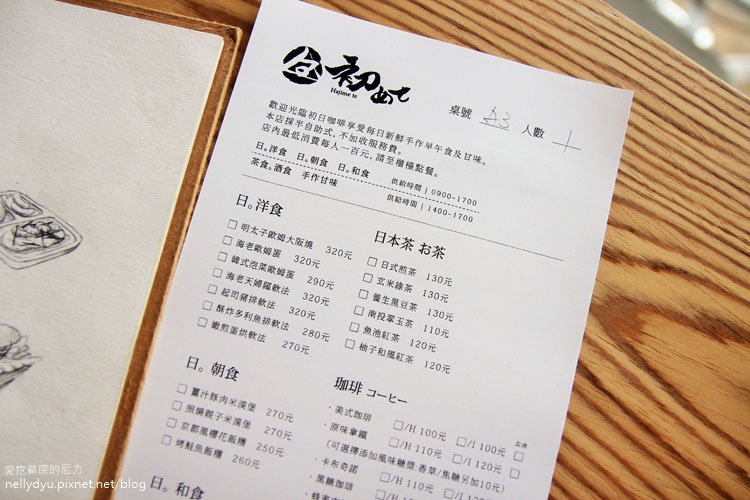 初めて
Hajime te
桌號 A3 人數
歡迎光臨初日咖啡享受每日新鮮手作早午食及甘味。
本店採半自助式，不加收服務費。
店內最低消費每人一百元，請至櫃檯點餐。
日。洋食 日。朝食 日。和食 供給時間 | 0900-1700
茶食。酒食 手作甘味 供給時間 | 1400-1700
日。洋食
□ 明太子歐姆大阪燒 320元
□ 海老歐姆蛋 320元
□ 韓式泡菜歐姆蛋 290元
□ 海老天婦羅軟法 320元
□ 起司豬排軟法 290元
□ 酥炸多利魚排軟法 280元
□ 嫩煎蛋烘軟法 270元
日。朝食
□ 薑汁豚肉米漢堡 270元
□ 照燒親子米漢堡 270元
□ 京都風櫻花飯糰 250元
□ 烤鮭魚飯糰 260元
日。和食
日本茶 お茶
□ 日式煎茶 130元
□ 玄米綠茶 130元
□ 養生黑豆茶 130元
□ 南投翠玉茶 110元
□ 魚池紅茶 120元
□ 柚子和風紅茶 120元
珈琲 コーヒー
去冰
· 美式咖啡 □/H 100元 □/I 100元 □
· 原味拿鐵 □/H 110元 □/I 120元 □
(可選擇添加風味糖漿:香草/焦糖另加10元)
· 卡布奇諾 □/H 110元 □/I 120元 □
· 黑糖咖啡
愛挖鼻屎的尼力
nellydyu.pixnet.net/blog